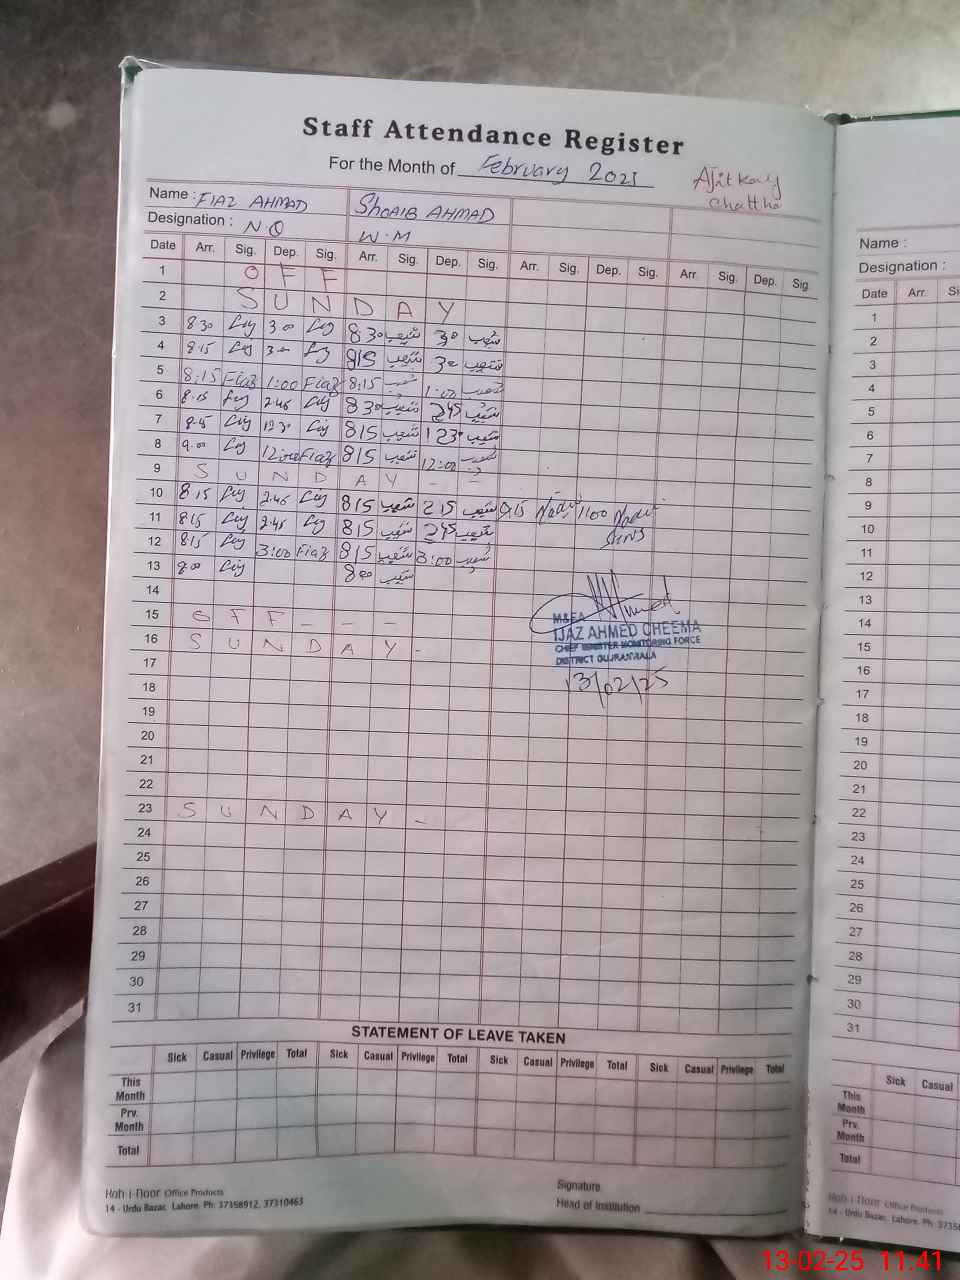 Staff Attendance Register
For the Month of February 2025
Ajitkay
Chattha
Name : FIAZ AHMAD SHOAIB AHMAD
Designation : N Q W.M
Date Arr. Sig. Dep. Sig. Arr. Sig. Dep. Sig. Arr. Sig. Dep. Sig. Arr. Sig. Dep. Sig.
1 O F F
2 S U N D A Y
3 8 30 3 00 8 30 شعیب 3 0 شعیب
4 8 15 3 00 8 15 شعیب 3 0 شعیب
5 8:15 Fiaz 1:00 Fiaz 8:15 شعیب 1:00 شعیب
6 8.15 2.45 8 30 شعیب 2 45 شعیب
7 12 30 8 15 شعیب 12 30 شعیب
8 9.00 12:00 Fiaz 8 15 شعیب 12:00 شعیب
9 S U N D A Y - -
10 8 15 2.45 8 15 شعیب 2 15 شعیب 9 15 11:00
11 8 15 2.45 8 15 شعیب 2 45 شعیب
12 8 15 3:00 Fiaz 8 15 شعیب 3:00 شعیب
13 8 00 8 00 شعیب
14
15 O F F - - -
16 S U N D A Y -
17
18
19
20
21
22
23 S U N D A Y -
24
25
26
27
28
29
30
31
M&EA
IJAZ AHMED CHEEMA
CHIEF MINISTER MONITORING FORCE
DISTRICT GUJRANWALA
13/02/25
STATEMENT OF LEAVE TAKEN
Sick Casual Privilege Total Sick Casual Privilege Total Sick Casual Privilege Total Sick Casual Privilege Total
This Month
Prv. Month
Total
Koh-i-Noor Office Products
14 - Urdu Bazar, Lahore. Ph: 37358912, 37310463
Signature
Head of Institution
Name :
Designation :
Date Arr.
1
2
3
4
5
6
7
8
9
10
11
12
13
14
15
16
17
18
19
20
21
22
23
24
25
26
27
28
29
30
31
Sick Casual
This Month
Prv. Month
Total
Koh-i-Noor Office Products
14 - Urdu Bazar, Lahore. Ph:
13-02-25 11:41